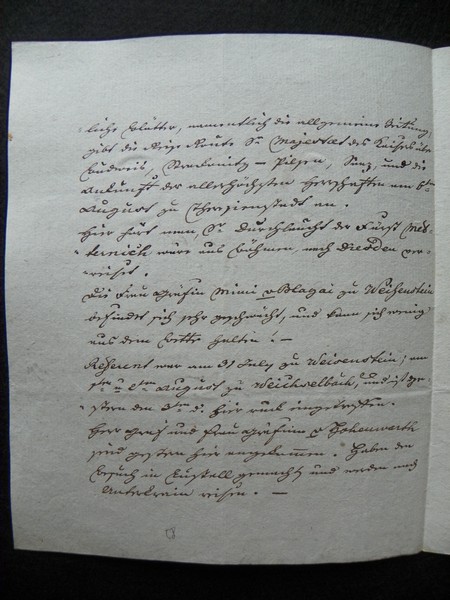 -liche Blätter, namentlich die allgemeine Zeitung,
gibt die Reise Route Sr Majestaet des Kaisers über
Budweis, Strakonitz – Pilsen, und die
Ankunft der allerhöchsten Herrschaften am
August zu Theresienstadt an.
Hier sagt man, Sr Durchlaucht der Fürst Met-
-ternich wäre aus Böhmen, nach Dresden ver-
-reiset.
Die Frau Gräfin Mimi v Blagai zu Weißenstein
befindet sich sehr geschwächt, und kann sich wenig
aus dem Bette halten! –
Referent war am 31 July zu Weixenstein; am
1ten u 2ten August zu Weichselbach, und ist ge-
-stern den 3ten d. hier rück eingetroffen.
Herr Graf und Frau Gräfinn v Hohenwarth
sind gestern hier angekommen. Haben den
Besuch in gemacht, und werden nach
Unterkrain reisen. –